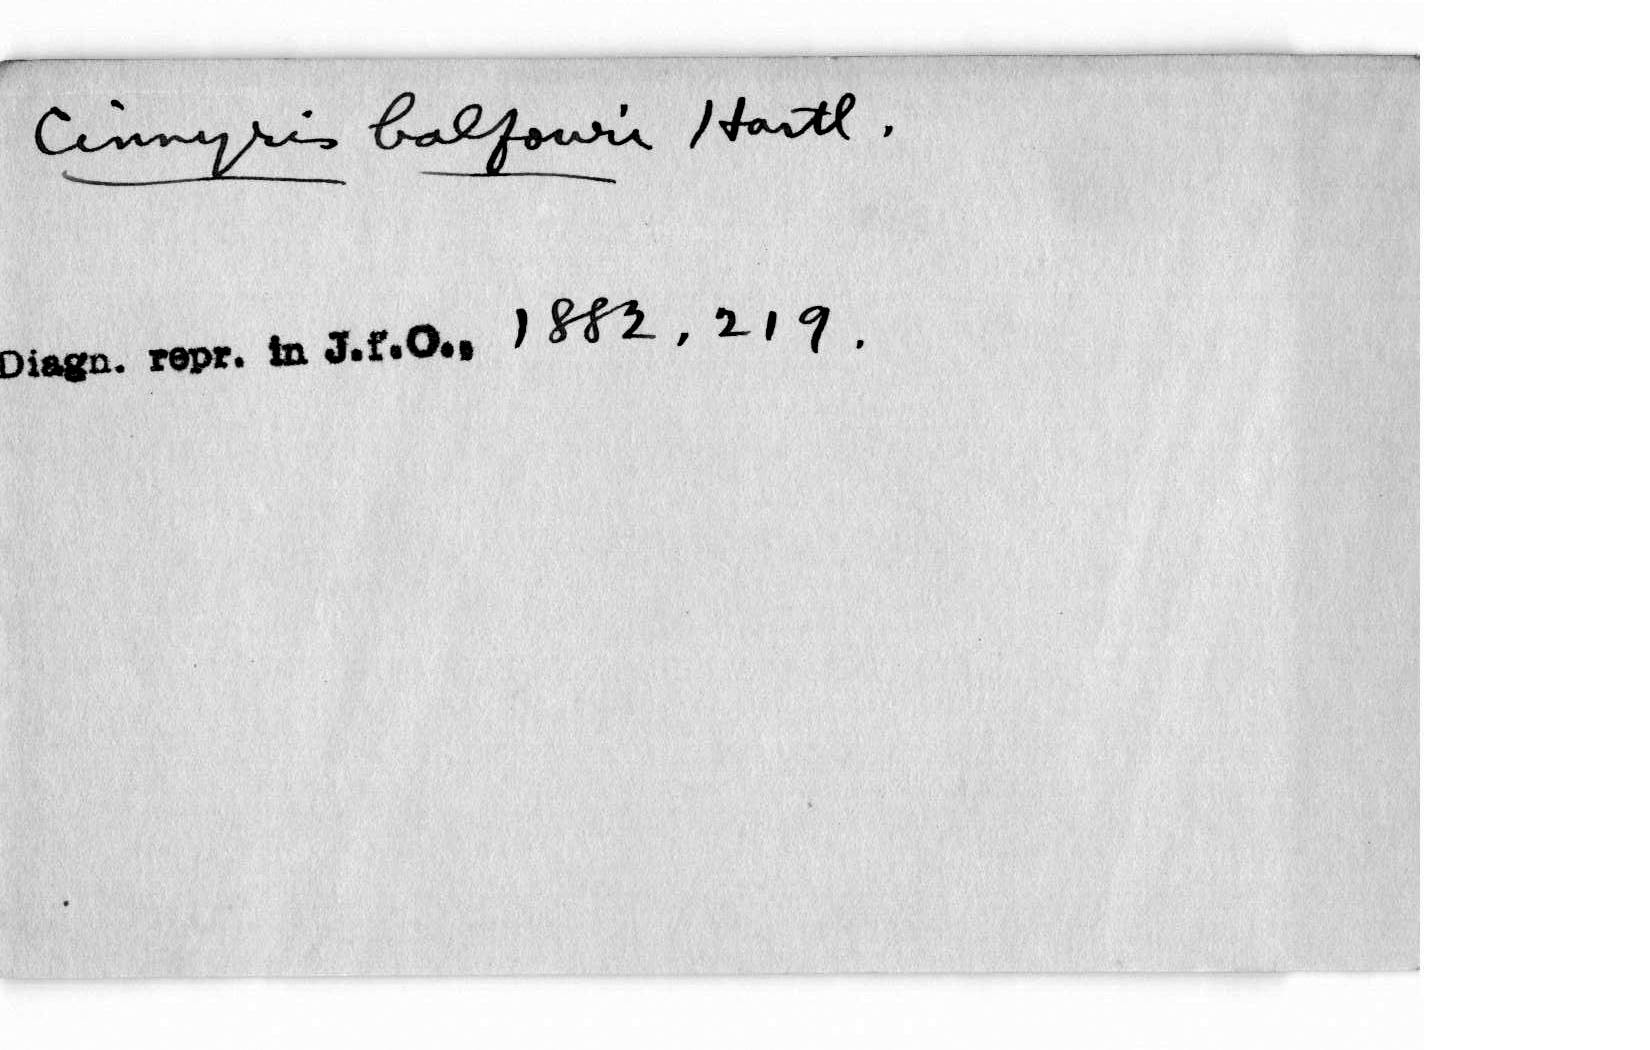 Cinnyris balfouri Hartl.
Diagn. repr. in J.f.O., 1882, 219.